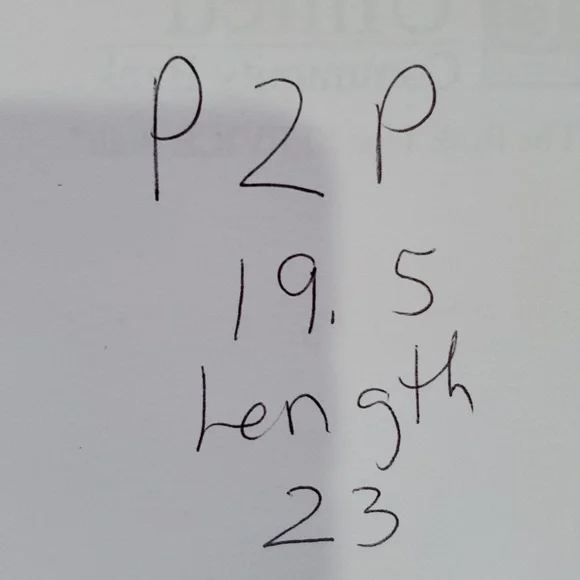 P2P
19.5
Length
23